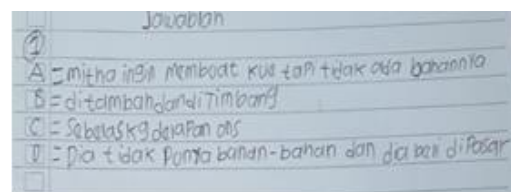 Jawaban
①
A = mitha ingin membuat kue tapi tidak ada bahannya
B = ditambah dan ditimbang
C = Sebelas kg delapan ons
D = Dia tidak Punya bahan-bahan dan dia beli di Pasar